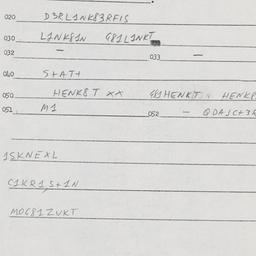 020 D3RL1NK83RFIS
030 L1NK81N G81L1NKT
032 — 033 —
040 S+AT+
050 HENK8T XX G81HENKT
051 M1 052 —
1SKNEXL
C1KR1S+1N
MOC81ZUKT